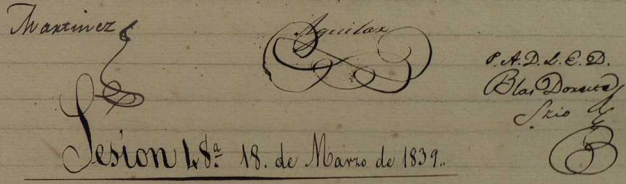 Martinez
Aguilar
P.A.D.L.E.D.
Blas
Srio
Sesion 48ª 18. de Marzo de 1839..